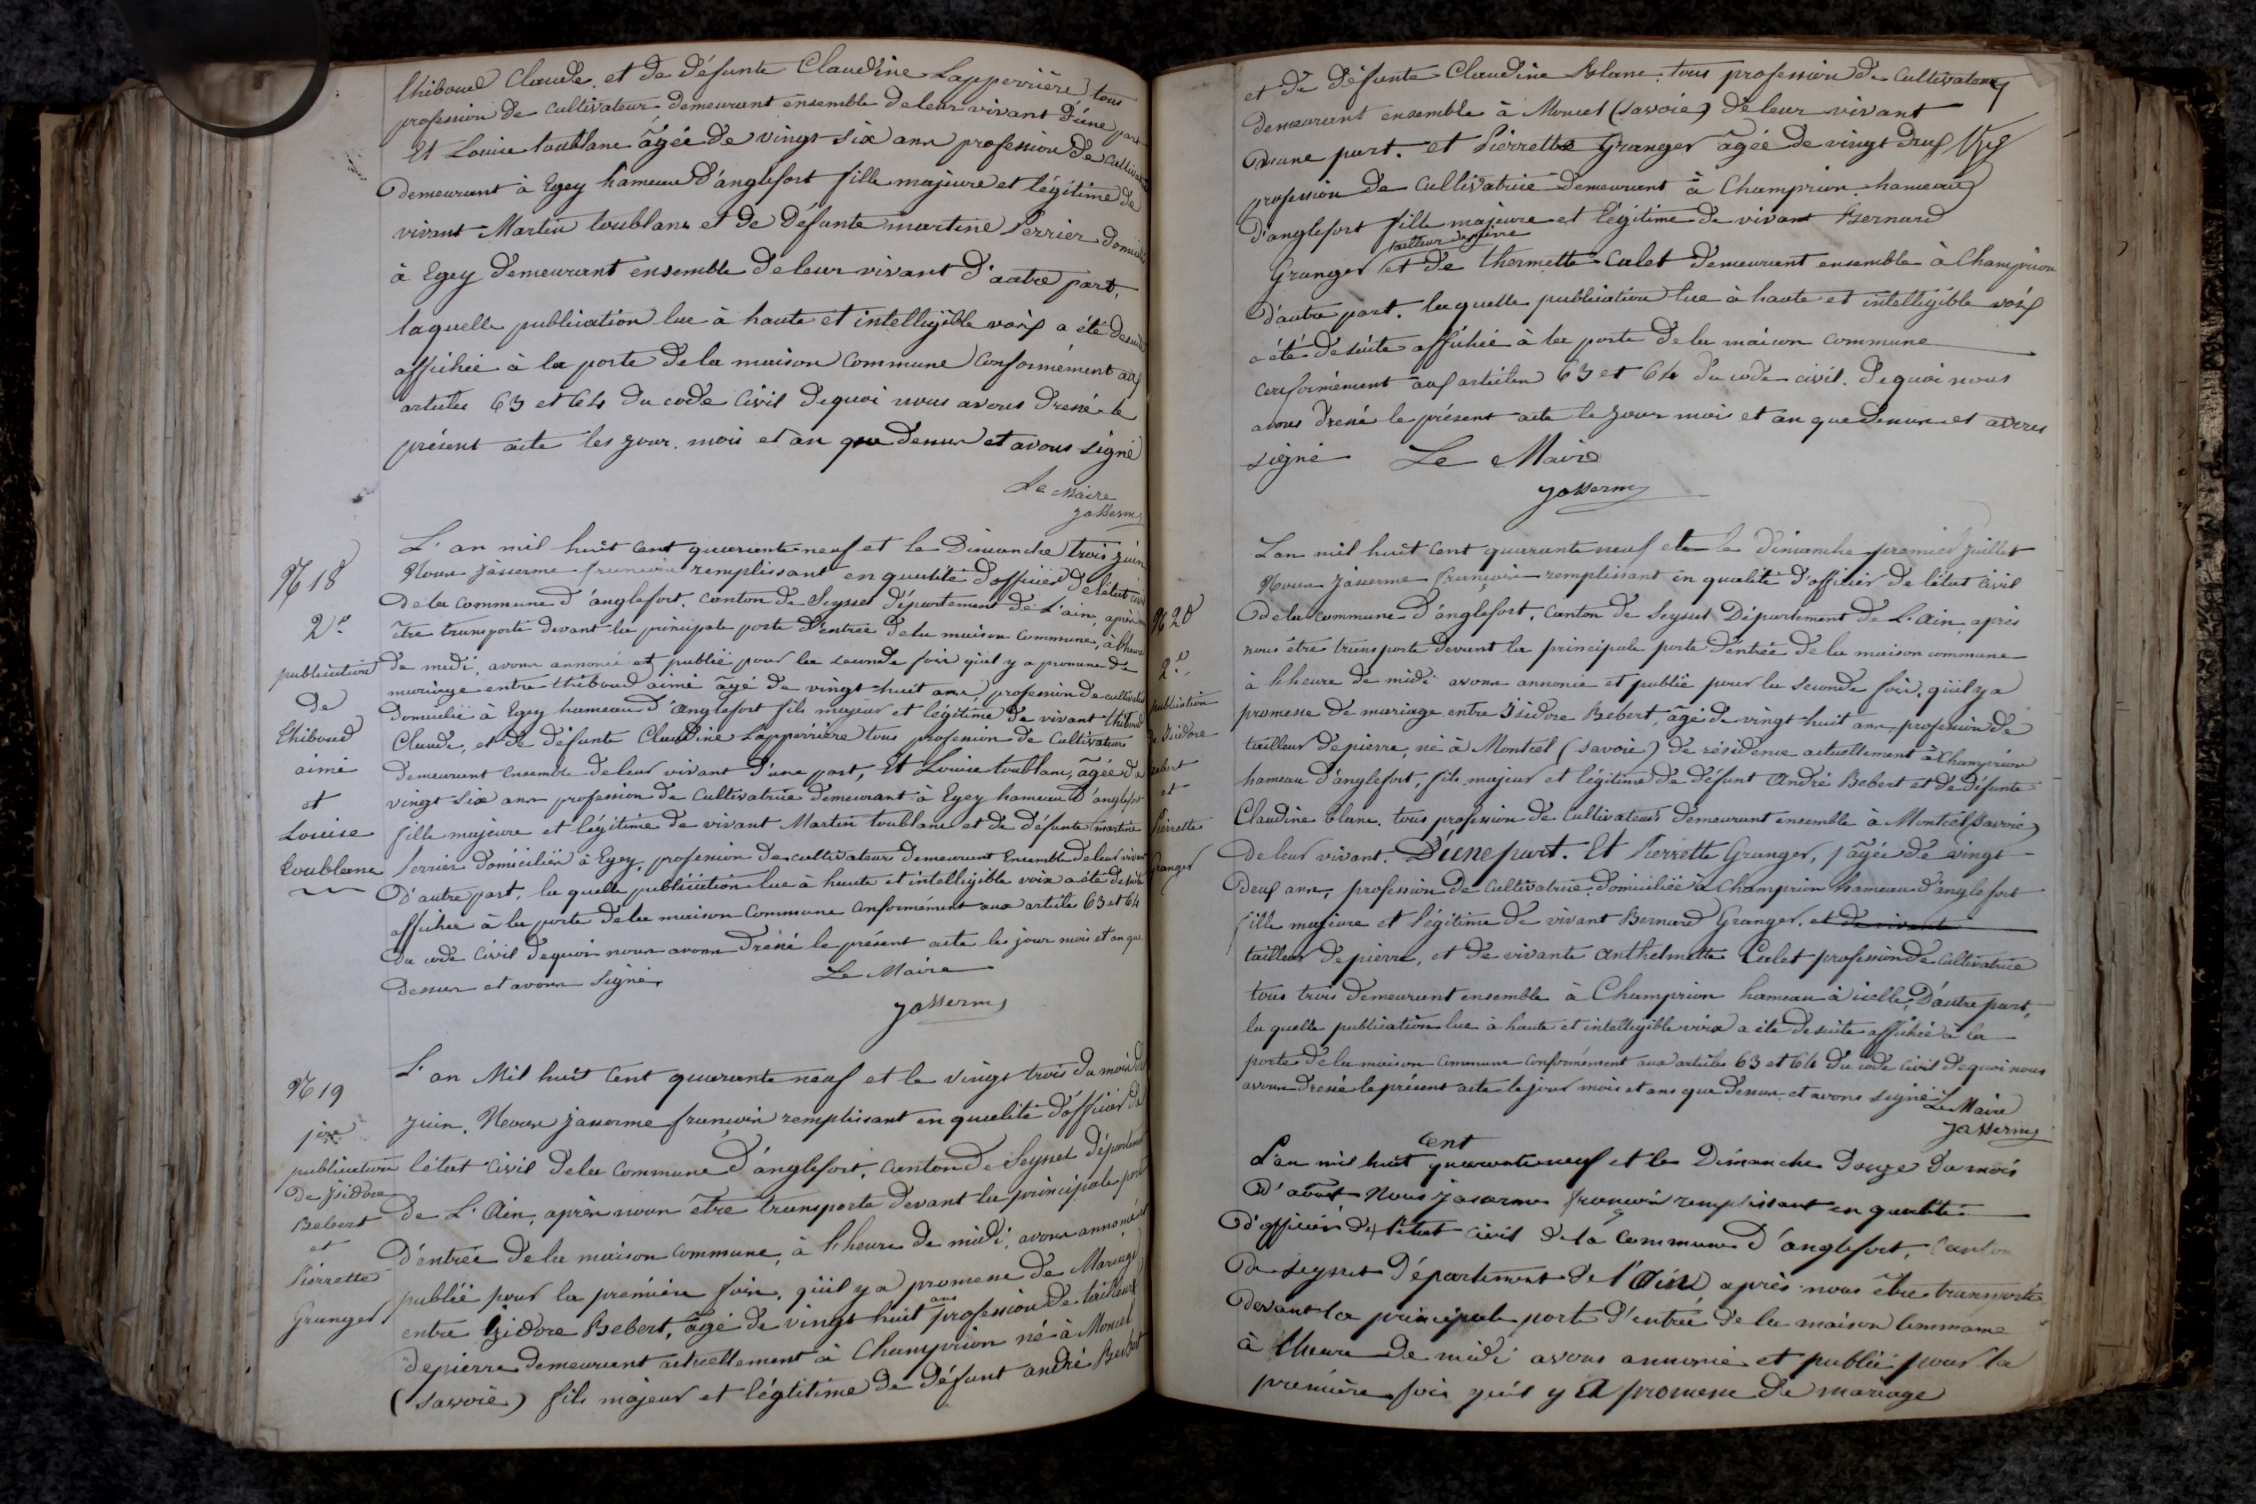 thiboud Claude, et de défunte Claudine Lapperrière tous
profession de cultivateur demeurant ensemble de leur vivant d'une part
Et Louise toublanc âgée de vingt six ans profession de cultivatrice
demeurant à Egey hameau d'anglefort fille majeure et légitime de
vivant Martin toublanc et de Défunte martine Perrier domiciliés
à Egey demeurant ensemble de leur vivant d'autre part,
laquelle publication lue à haute et intelligible voix a été desuite
affichée à la porte de la maison Commune Conformément aux
articles 63 et 64 du code Civil dequoi nous avons dressé le
présent acte les jour mois et an que dessus et avons signé
Le Maire
Jasserme
N 18
2e
publication
de
thiboud
aimé
et
Louise
toublanc
L'an mil huit cent quarante neuf et le Dimanche trois juin
Nous Jasserme françois remplissant en qualité d'officier de l'état civil
de la commune d'anglefort, canton de Seyssel département de L'ain, après nous
être transporté devant la principale porte d'entrée de la maison commune, à l'heure
de midi, avons annoncé et publié pour la seconde fois qu'il y a promesse de
mariage entre thiboud aimé âgé de vingt huit ans, profession de cultivateur
domicilié à Egey hameau d'anglefort fils majeur et légitime de vivant thiboud
Claude, et de défunte Claudine Lapperrière tous profession de Cultivateurs
demeurant ensemble de leur vivant d'une part, Et Louise toublanc, âgée de
vingt six ans profession de Cultivatrice demeurant à Egey hameau d'anglefort
fille majeure et légitime de vivant Martin toublanc et de défunte martine
Perrier domiciliés à Egey, profession de cultivateurs demeurant Ensemble de leur vivant
D'autre part, la quelle publication lue à haute et intelligible voix a été desuite
affichée à la porte de la maison Commune Conformément aux article 63 et 64
du code Civil dequoi nous avons dressé le présent acte les jour mois et an que
dessus et avons signé,
Le Maire
Jasserme
N 19
1ère
publication
de Isidore
Bebert
et
Pierrette
Granger
L'an Mil huit cent quarante neuf et le vingt trois du mois de
juin. Nous Jasserme françois remplissant en qualité d'officier de
l'état civil de la commune d'anglefort, canton de Seyssel département
de L'Ain, après nous être transporté devant la principale porte
d'entrée de la maison commune, à l'heure de midi, avons annoncé et
publié pour la première fois, qu'il y a promesse de Mariage
entre Isidore Bebert, âgé de vingt huit ans profession de tailleur
depierre demeurant actuellement à Champrion né à Moncel
(savoie) fils majeur et légitime de défunt andré Bebert
et de défunte Claudine Blanc. tous profession de Cultivateurs
demeurant ensemble à Moncel (savoie) de leur vivant
d'une part. et Pierrette Granger âgée de vingt deux
profession de Cultivatrice demeurant à Champrion hameau
d'anglefort fille majeure et légitime de vivant Bernard
tailleur de pierre
Granger et de thermette Calet demeurant ensemble à Champrion
d'autre part. laquelle publication lue à haute et intelligible voix
a été desuite affichée à la porte de la maison commune
conformément aux articles 63 et 64 du code civil. dequoi nous
avons dressé le présent acte le jour mois et an que dessus et avons
signé Le Maire
Jasserme
N 20
2e
publication
de Isidore
Bebert
et
Pierrette
Granger
L'an mil huit cent quarante neuf et le dimanche premier juillet
Nous Jasserme françois remplissant en qualité d'officier de l'état civil
de la commune d'anglefort, canton de Seyssel Département de L'Ain, après
nous être transporté devant la principale porte d'entrée de la maison commune
à l'heure de midi avons annoncé et publié pour la seconde fois, qu'il y a
promesse de mariage entre Isidore Bebert, âgé de vingt huit ans profession de
tailleur depierre, né à Montcel (savoie) de résidence actuellement à Champrion
hameau d'anglefort, fils majeur et légitime de défunt André Bebert et de défunte
Claudine blanc. tous profession de Cultivateurs demeurant ensemble à Montcel (savoie)
de leur vivant. D'une part. Et Pierrette Granger, âgée de vingt
deux ans, profession de Cultivatrice domiciliée à Champrion hameau d'anglefort
fille majeure et légitime de vivant Bernard Granger, et de vivante
tailleur depierre, et de vivante anthelmette Calet profession de Cultivatrice
tous trois demeurant ensemble à Champrion hameau à icelle, D'autre part,
la quelle publication lue à haute et intelligible voix a été desuite affichée à la
porte de la maison commune conformément aux articles 63 et 64 du code civil dequoi nous
avons dressé le présent acte le jour mois et ans que dessus et avons signé
Le Maire
Jasserme
Cent
L'an mil huit quarante neuf et le Dimanche douze du mois
D'aout Nous jasserme françois remplissant en qualité
D'officier de l'état civil de la Commune d'anglefort, Canton
De Seyssel département de l'Ain après nous être transporté
devant la principale porte d'entrée de la maison Commune
à l'heure de midi avons annoncé et publié pour la
première fois qu'il y A promesse de mariage